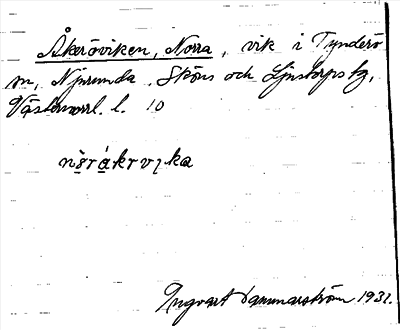 Åkeröviken, Norra, vik i Tynderö
m, Njurunda, Sköns och Ljustorps tg,
Västernorrl. l. 10
nò̤rá̤krvıka
Ingvart Dammarström 1931.